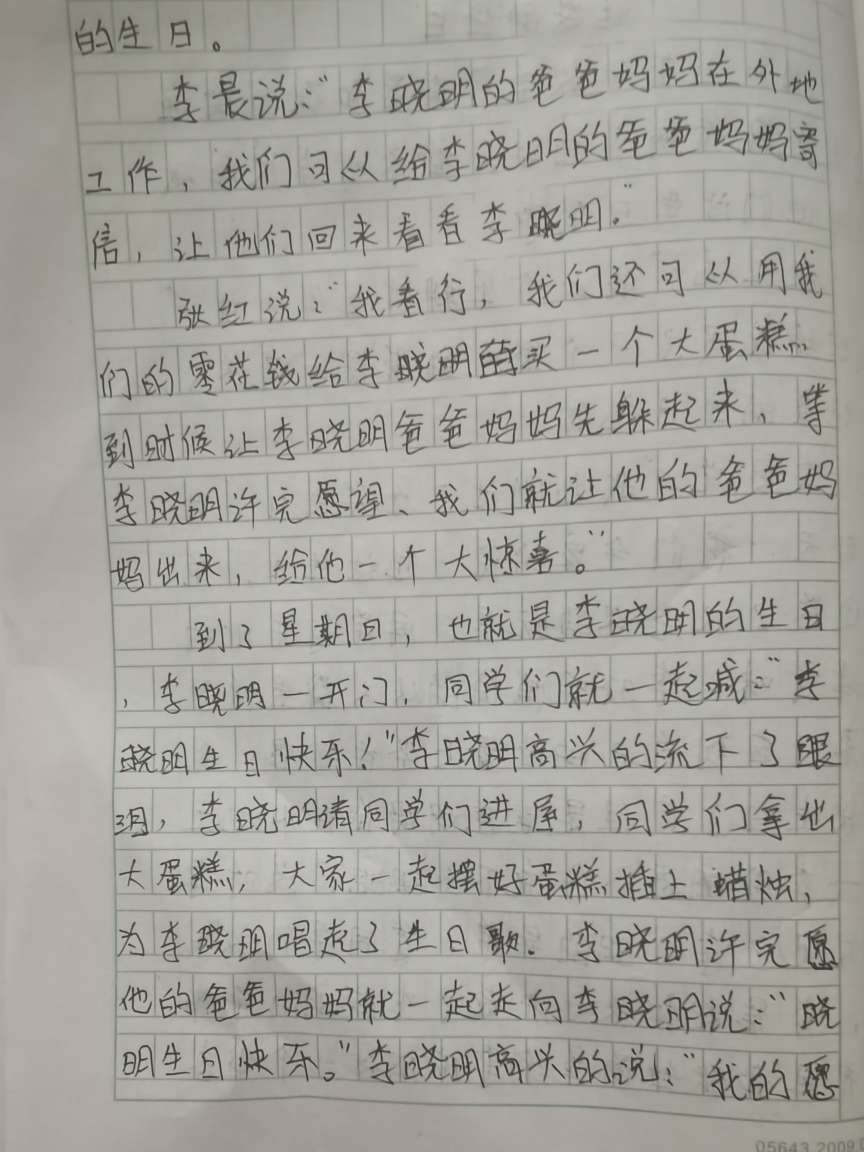 的生日。
李晨说:"李晓明的爸爸妈妈在外地
工作,我们可以给李晓明的爸爸妈妈寄
信,让他们回来看看李晓明。"
张红说:"我看行,我们还可以用我
们的零花钱给李晓明买一个大蛋糕,
到时候让李晓明爸爸妈妈先躲起来、等
李晓明许完愿望、我们就让他的爸爸妈
妈出来,给他一个大惊喜。"
到了星期日,也就是李晓明的生日
,李晓明一开门,同学们就一起喊:"李
晓明生日快乐!"李晓明高兴的流下了眼
泪,李晓明请同学们进屋,同学们拿出
大蛋糕,大家一起摆好蛋糕插上蜡烛,
为李晓明唱起了生日歌.李晓明许完愿
他的爸爸妈妈就一起走向李晓明说:"晓
明生日快乐。"李晓明高兴的说:"我的愿
05643.2009.